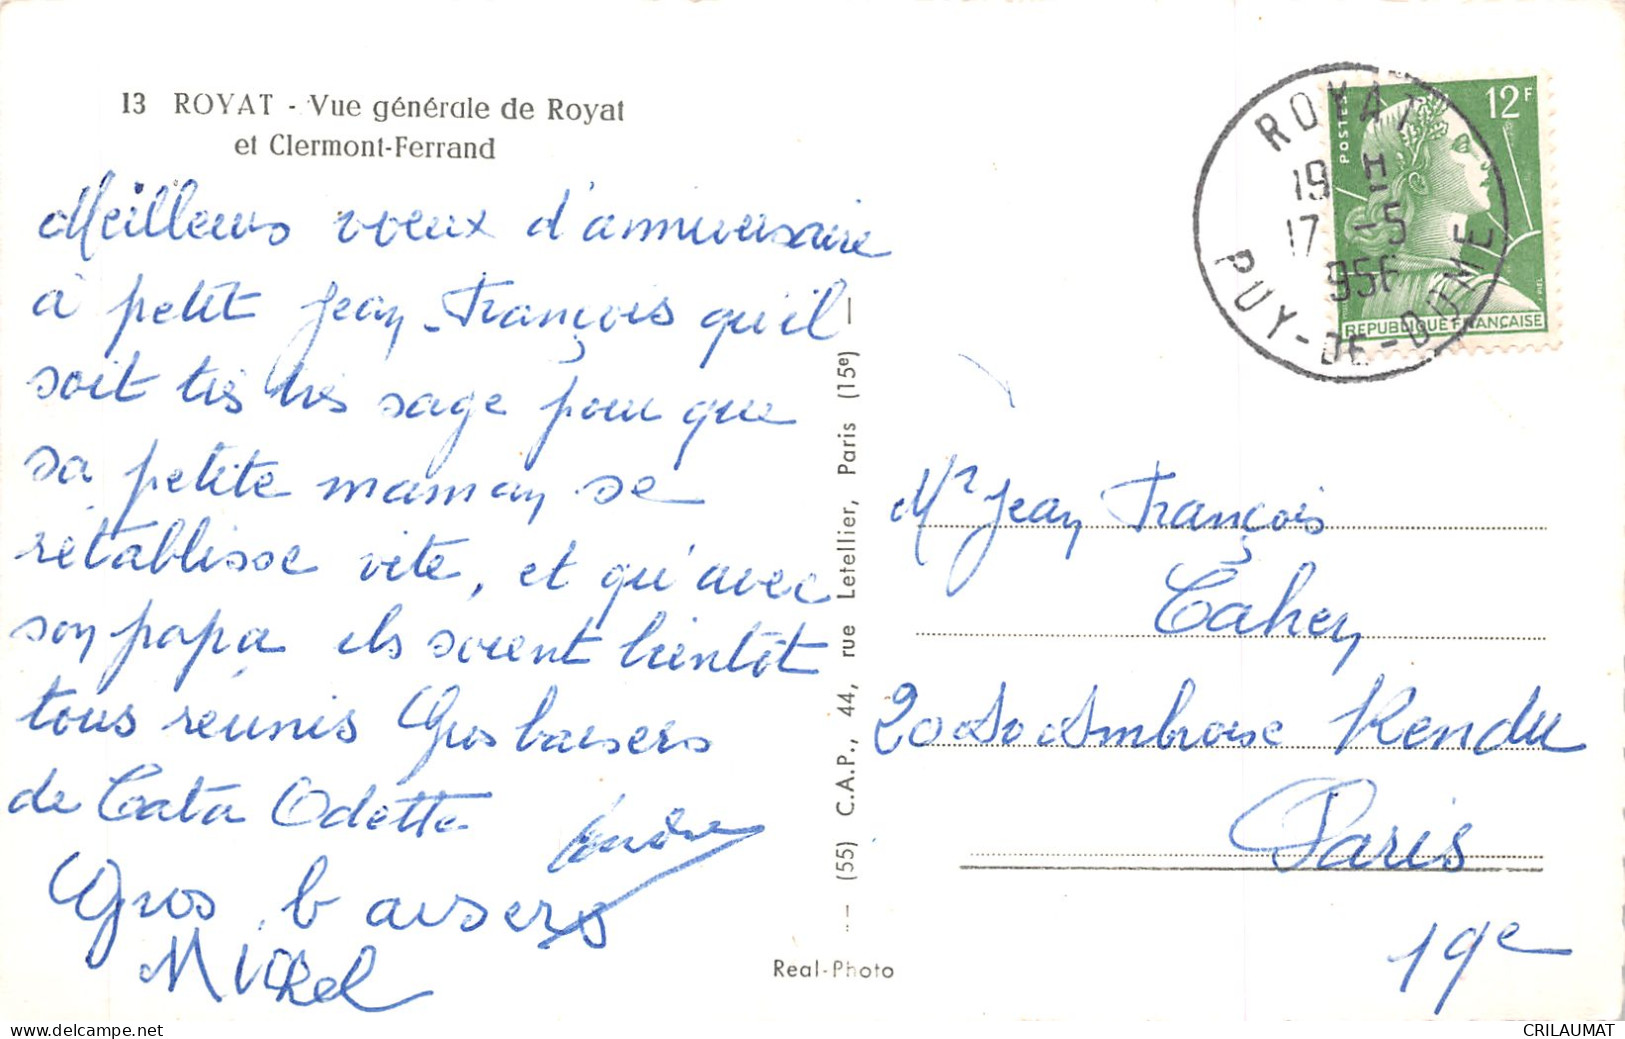 13 ROYAT - Vue générale de Royat
et Clermont-Ferrand
Meilleurs voeux d'anniversaire
à petit Jean-François qu'il
soit très très sage pour que
sa petite maman se
rétablisse vite, et qu'avec
son papa ils soient bientôt
tous réunis Gros baisers
de Tata Odette André
Gros baisers
Michel
(55) C.A.P., 44, rue Letellier, Paris (15e)
Real-Photo
ROYAT
19 H
17 -5
PUY-DE-DOME
POSTES
12F
REPUBLIQUE FRANÇAISE
Mr Jean François
Cahen
20 Ambroise Rendu
Paris
19e
www.delcampe.net
CRILAUMAT